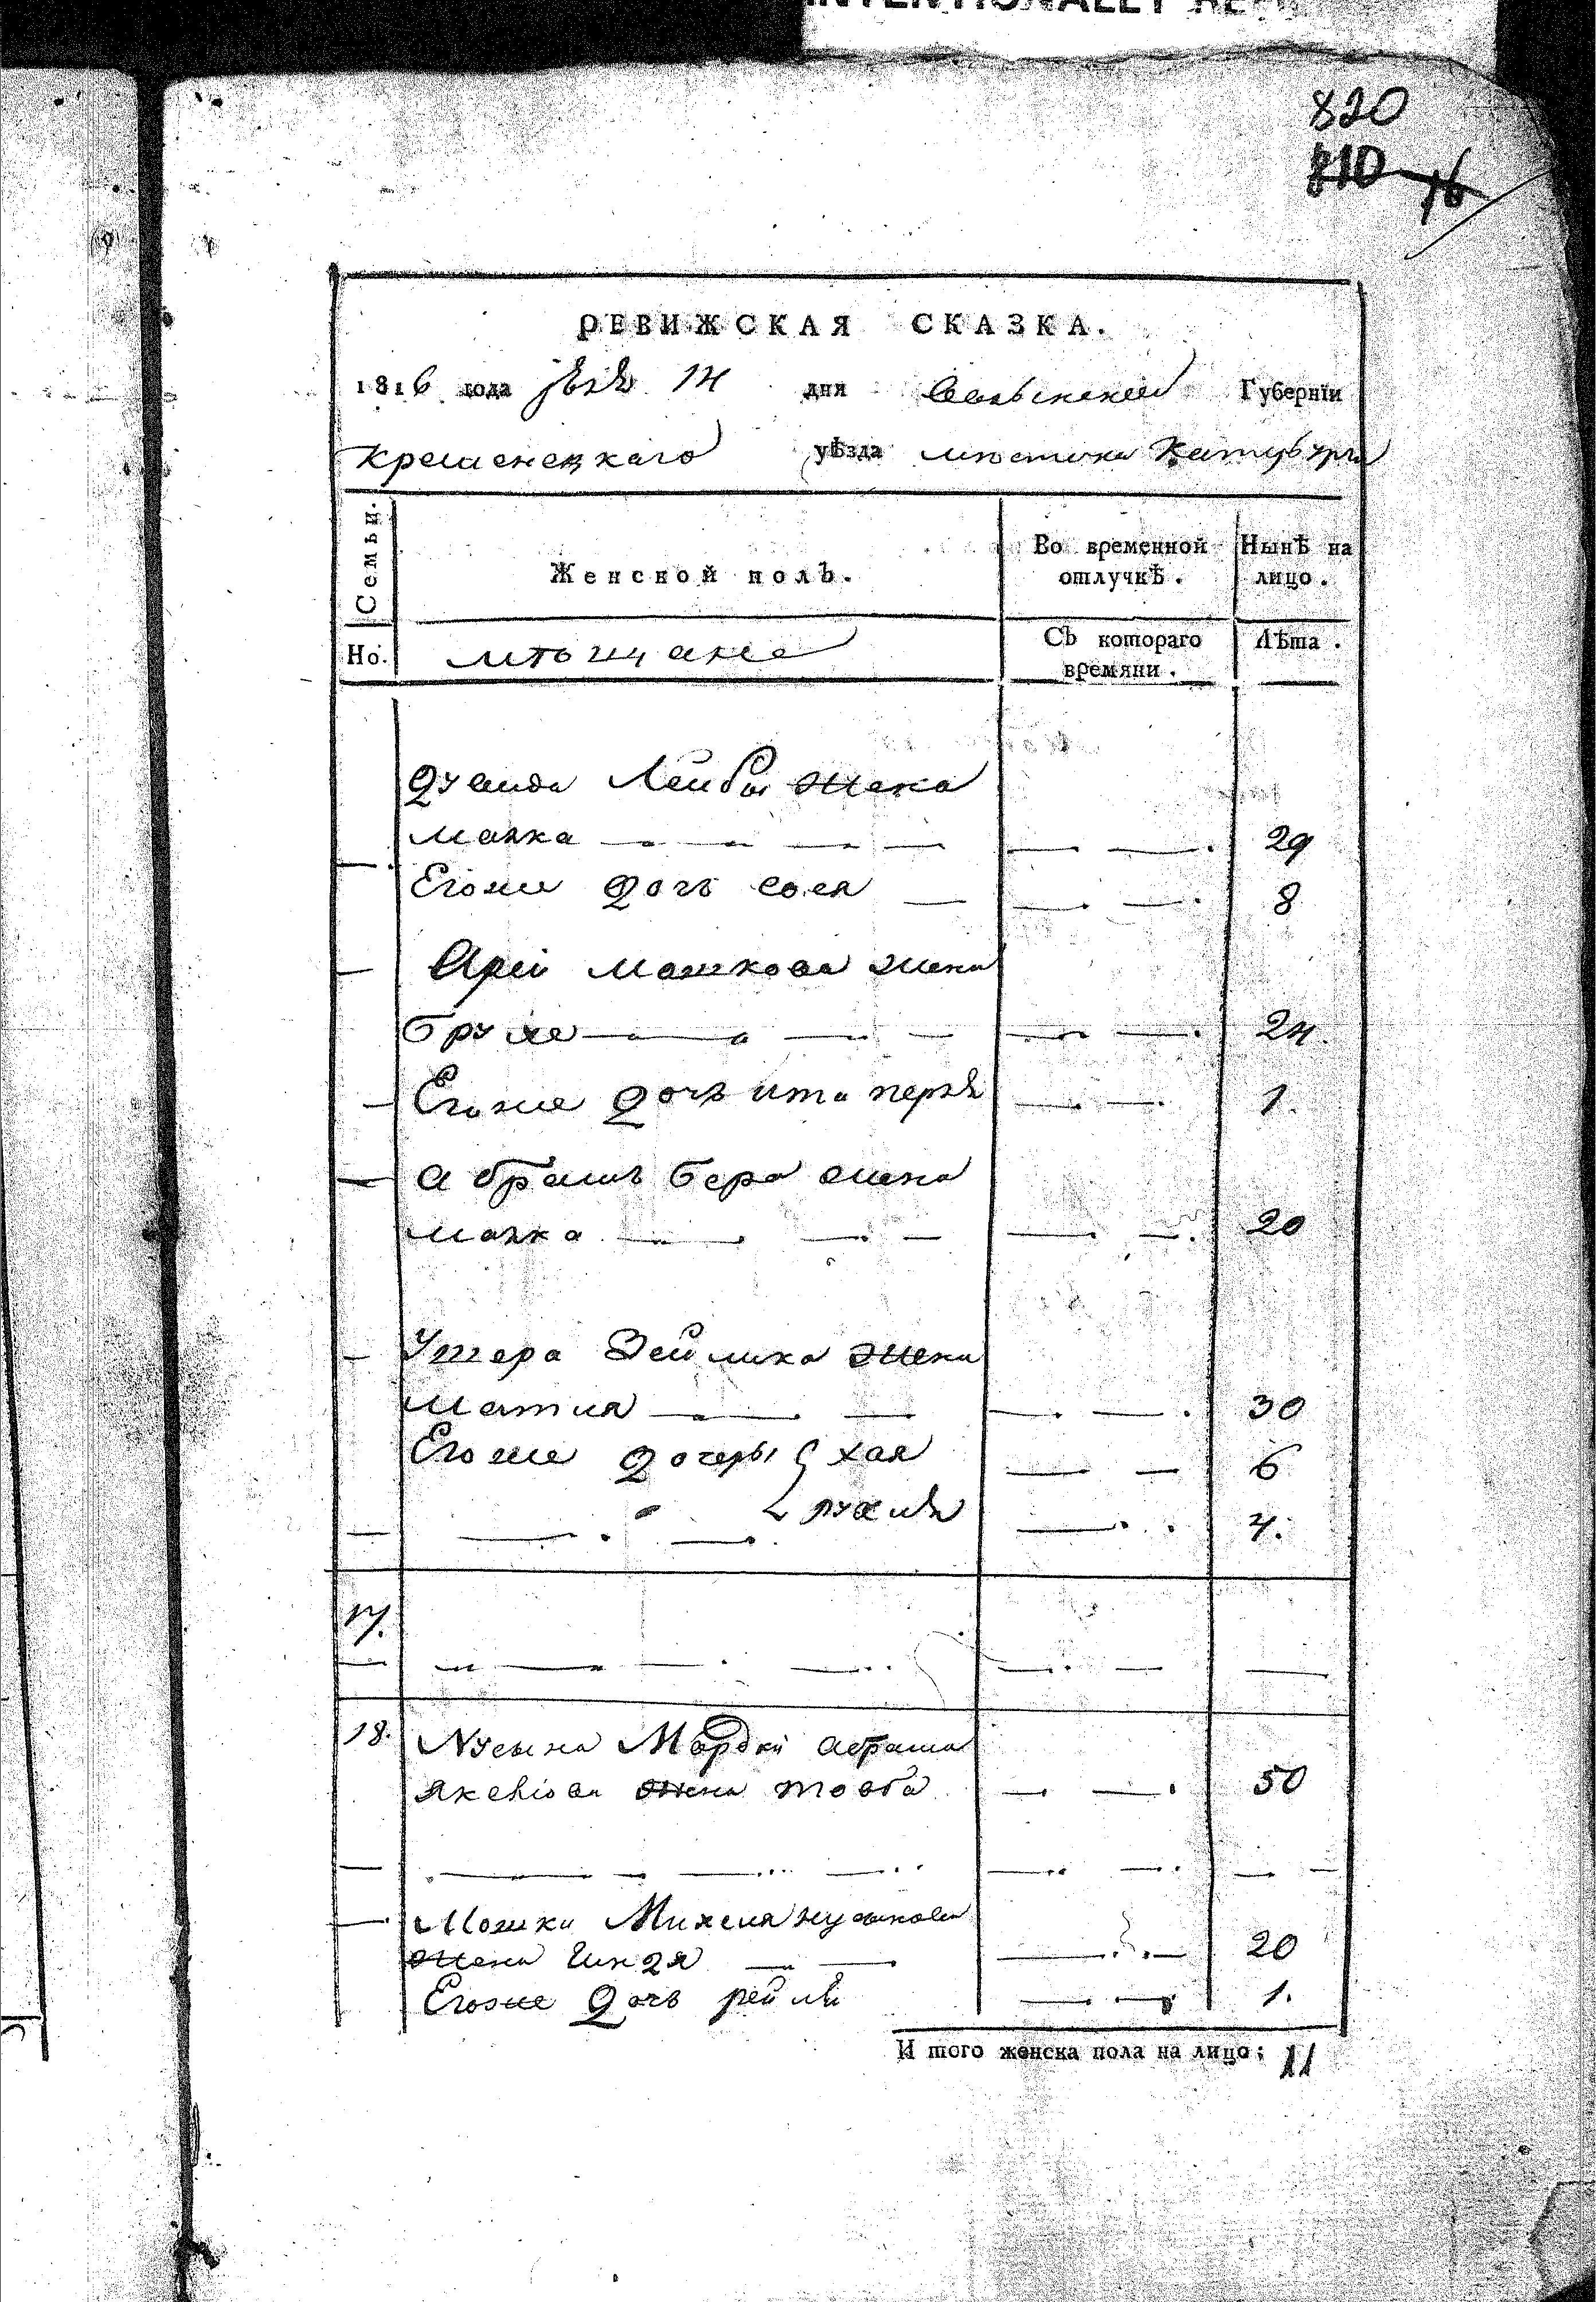 820
810 76
РЕВИЖСКАЯ СКАЗКА.
1816 года 14 дня Волынской Губернїи
Кременецкаго уѣзда местечка Катербурга
Семьи. Женской полъ. Во временной отлучкѣ. Нынѣ на лицо.
Но. мѣщане Съ котораго времяни. Лѣта.
Лейбы жена
Малка 29
Егоже дочь 8
Арей Мошкова жена
Бруха 24
Егоже дочь ита перля 1.
Абрамъ Бера жена
Малка 20
Зейлика жена
Матля 30
Егоже дочеры хая 6
рухля 4.
17.
18. Нусына Мордки Абрама
жена тоба 50
Мошки Михеля Нусинова
жена 20
Егоже дочь рейля 1.
И того женска пола на лицо; 11